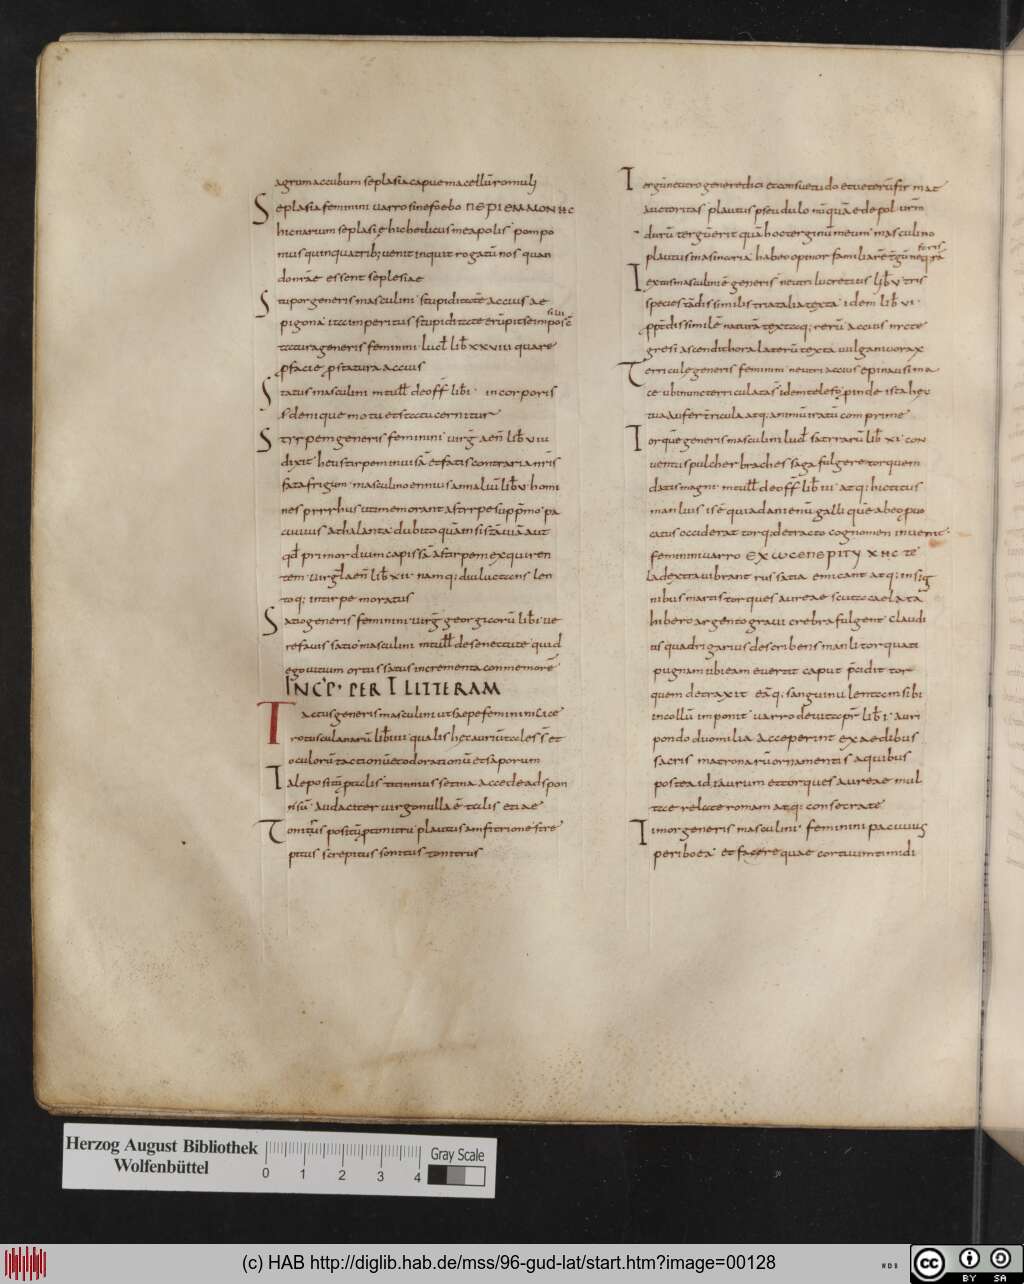 agrum accubum seplasia capue macellū romuli
Seplasia feminini varro sinefoebo ΠΕΡΙΕΜΜΟΝΗC
hic narium seplasię hic hedicus meapolis pompo
nius quinquatrib; venit inquit rogatū nos quan
do intrāe essent seplesiae
Stupor generis masculini stupiditatē accius ae
pigona ita imperitus stupiditate erūpit se impos ē
tatura generis feminini lucł lib̄ xxviii quare
facie statura accius
Status masculini mtułł de off̄ lib̄ i in corporis
denique motu et statu cernitur
Styrpem generis feminini virḡ aen̄ lib̄ vii
dixit heu stirpem invisā et fatis contraria nr̄is
fata frigum masculino ennius annaliū lib̄ v homi
nes pyrrhus uti memorant a stirpe supp̄mo pa
cuvius athalanta dubito quā insistā viā aut
qd̄ primordium capissā ad stirpem exquiren
tem virgł aen̄ lib̄ xii namq; diu luctans len
toq; in stirpe moratus
Satio generis feminini virḡ georgicorū lib̄ ve
re favis satio masculini mtułł de senectute quid
ego vitium ortus satus incrementa conmemorē
INCP̄ PER T LITTERAM
Tactus generis masculini ut saepe feminini cice
ro tusculanarū lib̄ iiii qualis hęc auriū tales s̄ et
oculorū tactionū et odorationū et saporum
Tale positū p talis titinius setina accede ad spon
sū audaciter virgo nulla ē talis etiae
Tonitrus positū p tonitru plautus amfitrione stre
pitus screpitus sonitus tonitrus
Tergū neutro genere dici et consuetudo et veterū fir mat
auctoritas plautus pseudulo nūquā edepol vr̄m
durū tergū erit quā hoc terginū meum masculino
toris
plautus masinaria habeo opinor familiarē
Textus masculini ē generis neutri lucretius lib̄ v tris
species tā dissimilis tria talia texta idem lib̄ vi
ppt̄ dissimilē naturā textaq; rerū accius m̄cte
gresi ascendit hora laterū texta vulgani vorax
Terricule generis feminini neutri accius epinausima
ce ubi nunc terricula tas idem telefo pinde ista hęc
tua aufer tricula atq; animū iratū comprime
Torquē generis masculini lucł satirarū lib̄ xi con
ventus pulcher braches saga fulgere torquem
datis magni mtułł de off̄ lib̄ iii atq; hic titus
manlius is ē qui ad anienū galli quē ab eo pvo
catus occiderat torq; detracto cognomen invenit
feminini varro
la dextra vibrant russatia emicant atq; insig
nibus martis torques aureae scuta caelata
hibero argento gravi crebra fulgent claudi
us quadrigarius describens manli torquati
pugnam ubi eam evertit caput p̄cidit tor
quem detraxit eāq; sanguinulentam sibi
in collū imponit varro de vita pr̄ lib̄ i auri
pondo duo milia acceperint ex aedibus
sacris matronarū ornamentis aquibus
postea id iaurum et torques aureae mul
tae relate romam atq; consecrate
Timor generis masculini feminini pacuvius
periboea et facere quae cor tuum timidi
Herzog August Bibliothek
Wolfenbüttel
0 1 2 3 4
Gray Scale
(c) HAB http://diglib.hab.de/mss/96-gud-lat/start.htm?image=00128
WDB
cc BY SA